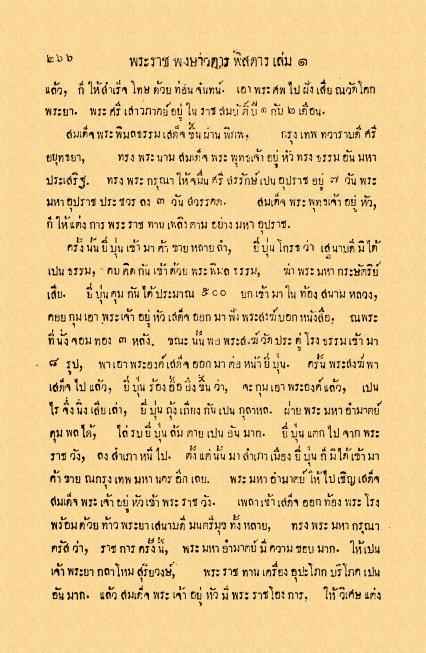 ๒๖๖ พระราช พงษาวดาร พิสดาร เล่ม ๑
แล้ว, ก็ ให้สำเร็จ โทษ ด้วย ท่อน จันทน์. เอา พระศพ ไป ฝั่ง เสีย ณวัดโคก
พระยา. พระ ศรี เสาวภาคย์ อยู่ ใน ราช สมบัติ ปี ๑ กับ ๒ เดือน.
สมเด็จ พระ พิมลธรรม เสด็จ ขึ้น ผ่าน พิภพ, กรุง เทพ ทวาราบดี ศรี
อยุทธยา, ทรง พระ นาม สมเด็จ พระ พุทธเจ้า อยู่ หัว ทรง ธรรม อัน มหา
ประเสริฐ. ทรง พระ กรุณา ให้ จมื่น ศรี สรรักษ์ เป็น อุปราช อยู่ ๗ วัน พระ
มหา อุปราช ประชวร ลง ๓ วัน สวรรคต. สมเด็จ พระ พุทธเจ้า อยู่ หัว,
ก็ ให้แต่ง การ พระ ราช ทาน เพลิง ตาม อย่าง มหา อุปราช.
ครั้ง นั้น ยี่ ปุ่น เข้า มา ค้า ขาย หลาย ลำ, ยี่ ปุ่น โกรธ ว่า เสนาบดี มิได้
เป็น ธรรม, คบ คิด กัน เข้า ด้วย พระ พิมล ธรรม, ฆ่า พระ มหา กระษัตริย์
เสีย. ยี่ ปุ่น คุม กัน ได้ ประมาณ ๕๐๐ ยก เข้า มา ใน ท้อง สนาม หลวง,
คอย กุม เอา พระ เจ้า อยู่ หัว เสด็จ ออก มา ฟัง พระ สงฆ์ บอก หนังสือ, ณพระ
ที่ นั่ง จอม ทอง ๓ หลัง. ขณะ นั้น พอ พระ สงฆ์ วัด ประ ดู่ โรง ธรรม เข้า มา
๘ รูป, พา เอา พระ องค์ เสด็จ ออก มา ต่อ หน้า ยี่ ปุ่น. ครั้น พระ สงฆ์ พา
เสด็จ ไป แล้ว, ยี่ ปุ่น ร้อง อื้อ อึง ขึ้น ว่า, จะ กุม เอา พระ องค์ แล้ว, เปน
ไร จึ่ง นิ่ง เสีย เล่า, ยี่ ปุ่น ถุ้ง เถียง กัน เปน กุลาหล. ฝ่าย พระ มหา อำมาตย์
คุม พล ได้, ไล่ รบ ยี่ ปุ่น ล้ม ตาย เปน อัน มาก. ยี่ ปุ่น แตก ไป จาก พระ
ราช วัง, ลง สำเภา หนี ไป. ตั้ง แต่ นั้น มา สำเภา เมือง ยี่ ปุ่น ก็ มิ ได้ เข้า มา
ค้า ขาย ณกรุง เทพ มหา นคร อีก เลย. พระ มหา อำมาตย์ ให้ ไป เชิญ เสด็จ
สมเด็จ พระ เจ้า อยู่ หัว เข้า พระ ราช วัง. เพลา เช้า เสด็จ ออก ท้อง พระ โรง
พร้อม ด้วย ท้าว พระยา เสนาบดี มนตรีมุข ทั้ง หลาย, ทรง พระ มหา กรุณา
ตรัส ว่า, ราช การ ครั้ง นี้, พระ มหา อำมาตย์ มี ความ ชอบ มาก. ให้ เปน
เจ้า พระยา กลาโหม สุริยวงษ์, พระ ราช ทาน เครื่อง อุปะโภก บริโภค เปน
อัน มาก. แล้ว สมเด็จ พระ เจ้า อยู่ หัว มี พระ ราช โอง การ, ให้ วิเศษ แต่ง